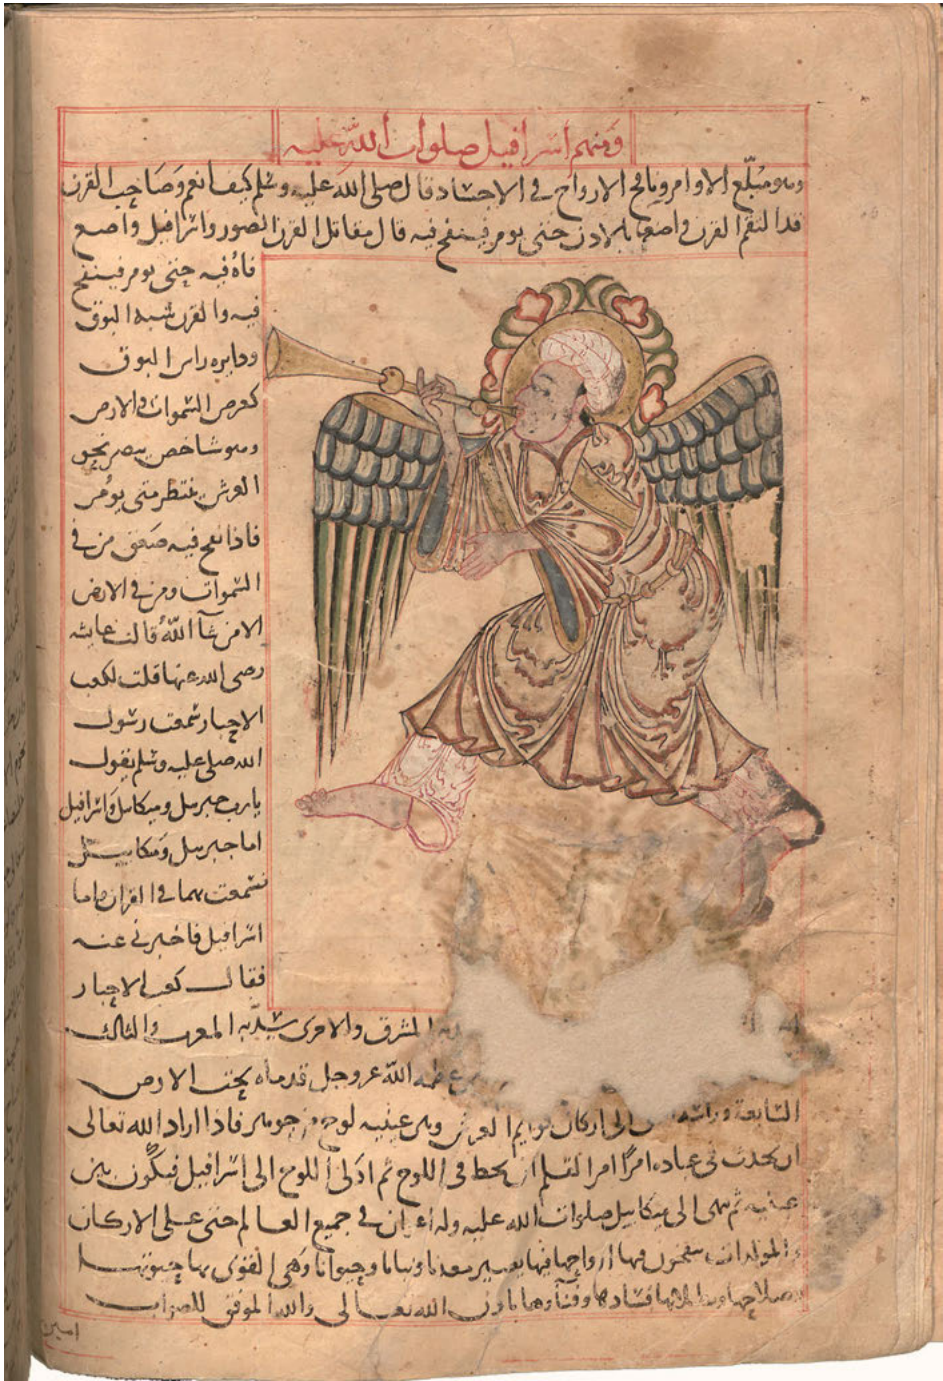 ومنهم اسرافيل صلوات الله عليه
وهو مبلّغ الاوامر ونافخ الارواح في الاجساد قال صلى الله عليه وسلم كيف انعم وصاحب القرن
قد التقم القرن واصغى بالاذن حتى يومر فينفخ فيه قال مقاتل القرن الصور واسرافيل واضع
فاه فيه حتى يومر فينفخ
فيه والقرن شبه البوق
ودايره راس البوق
كعرض السموات والارض
وهو شاخص ببصره نحو
العرش ينتظر متى يومر
فاذا نفخ فيه صعق من في
السموات ومن في الارض
الا من شآ اللّه قالت عايشه
رضى الله عنها قلت لكعب
الاحبار سمعت رسول
الله صلى عليه وسلم يقول
يارب جبريل وميكايل واسرافيل
اما جبريل وميكاييل
فسمعت بهما في القران واما
اسرافيل فاخبرني عنه
فقال كعب الاحبار
المشرق والاخرى المغرب والثالث
الله عز وجل قدماه تحت الارض
السابعة وراسه الى اركان قوايم العرش وبين عينيه لوح من جوهر فاذا اراد الله تعالى
ان يحدث في عباده امرًا امر القلم ان يخط في اللوح ثم ادلى اللوح الى اسرافيل فيكون بين
عينيه ثم هى الى ميكاييل صلوات الله عليه وله اعوان في جميع العالم حتى على الاركان
والمولدات ينفخون فيها ارواحها فيها يصير معدنا ونباتا وحيوانا وهى القوى بها حيوتها
صلاحها فسادها وفناوها باذن الله تعالى والله الموفق للصواب